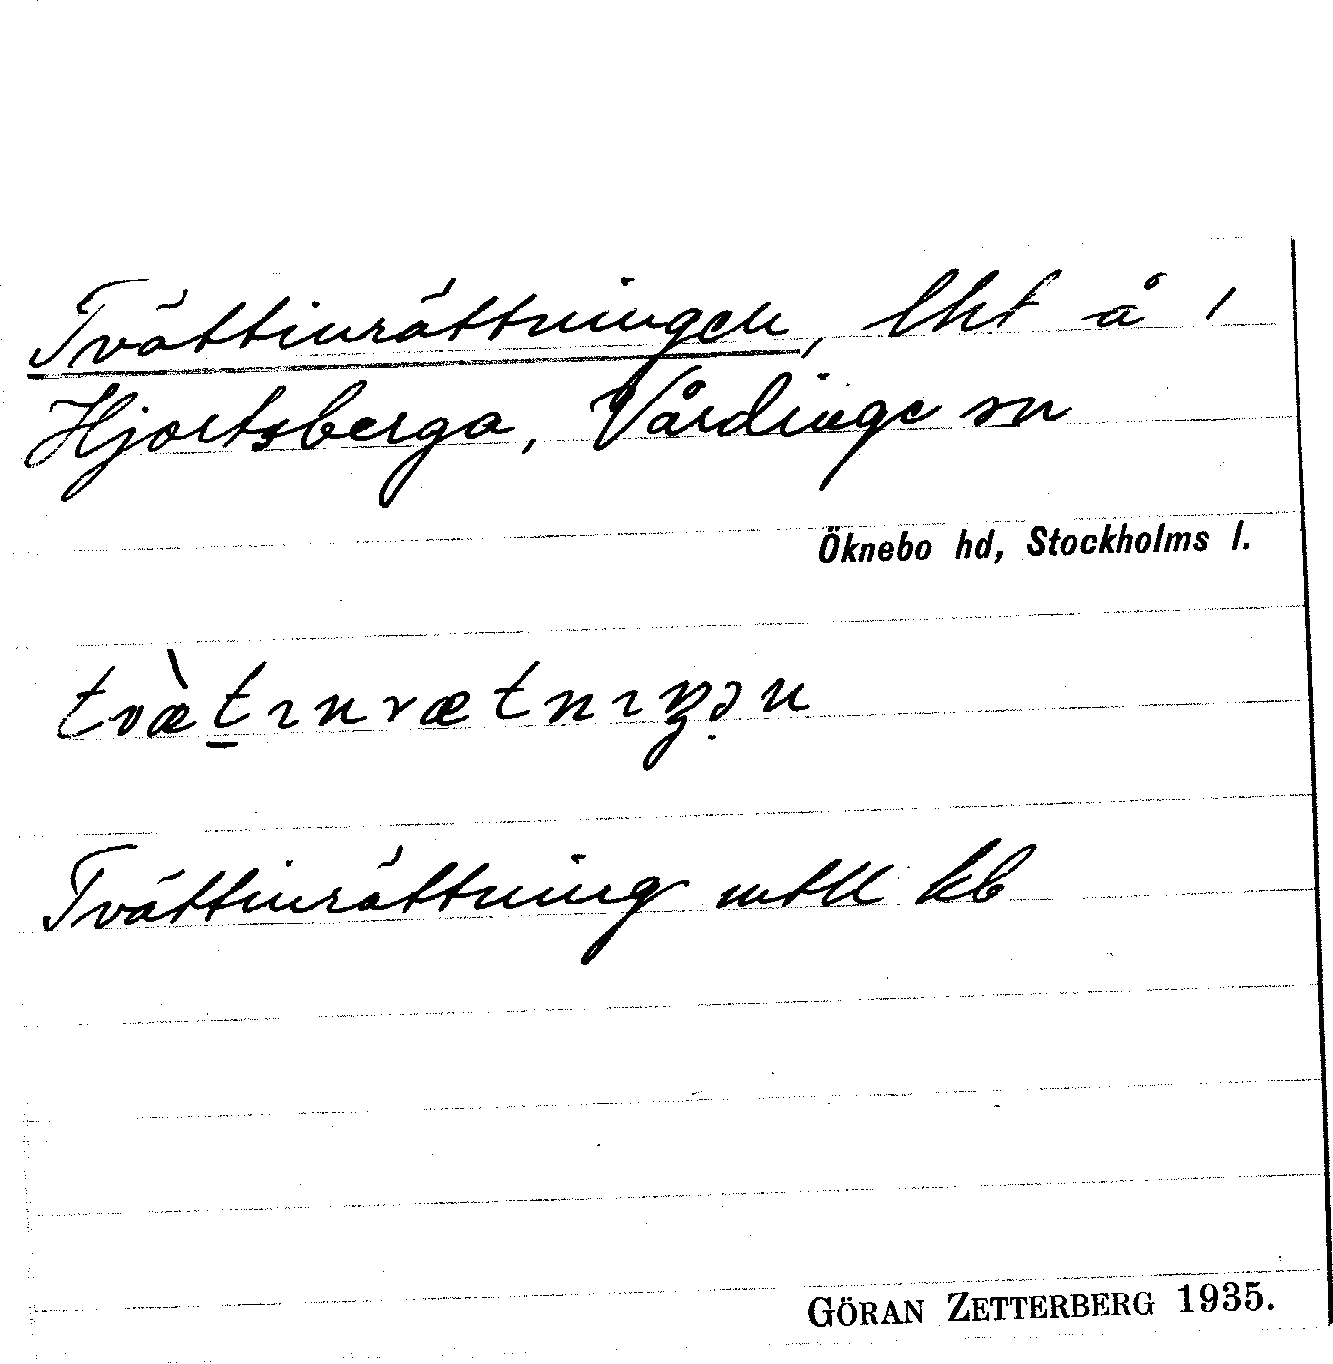 Tvättinrättningen, lht å 1
Hjortsberga, Vårdinge sn
Öknebo hd, Stockholms l.
tvæ̀t̠ɪnrætnɪŋə̣n
Tvättinrättning mtll kb
GÖRAN ZETTERBERG 1935.